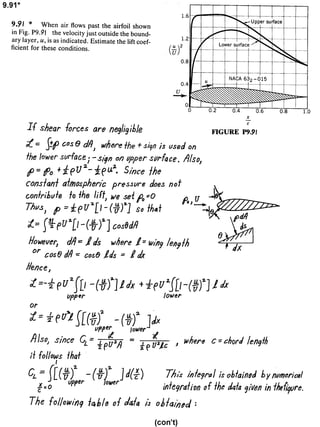 9.91*
9.91 * When air flows past the airfoil shown
in Fig. P9.91 the velocity just outside the bound-
ary layer, u, is as indicated. Estimate the lift coef-
ficient for these conditions.
1.6
Upper surface
1.2
Lower surface
(u/U)²
0.8
0.4
u
NACA 63₁-015
U
0
0 0.2 0.4 0.6 0.8 1.0
x/c
FIGURE P9.91
If shear forces are negligible
ℒ = ∫±p cosθ dA, where the + sign is used on
the lower surface; - sign on upper surface. Also,
p = p₀ + ½ρU² - ½ρu². Since the
constant atmospheric pressure does not
contribute to the lift, we set p₀=0
Thus, p = ½ρU²[1-(u/U)²] so that
ℒ = ∫±½ρU²[1-(u/U)²] cosθ dA
However, dA = l ds where l = wing length
or cosθ dA = cosθ l ds = l dx
Hence,
ℒ = -½ρU²∫[1-(u/U)²] l dx + ½ρU²∫[1-(u/U)²] l dx
upper lower
or
ℒ = ½ρU²l ∫[(u/U)² - (u/U)²] dx
upper lower
Also, since C_L = ℒ/(½ρU²A) = ℒ/(½ρU²lc), where c = chord length
it follows that
C_L = ∫[(u/U)² - (u/U)²] d(x/c) This integral is obtained by numerical
x/c=0 upper lower integration of the data given in the figure.
The following table of data is obtained:
p₀, U
u
pdA
ds
θ
dx
(con't)